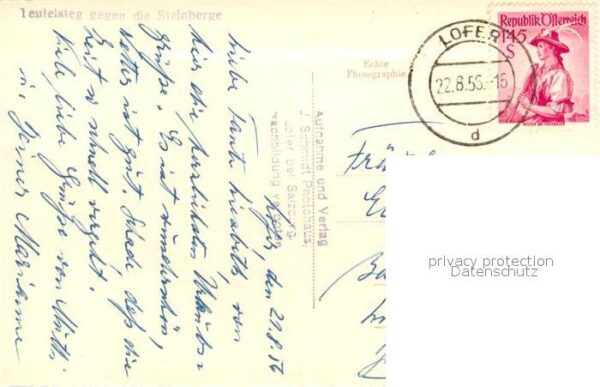 Teufelsteg gegen die Steinberge
Echte
Photographie
Republik Österreich
1.45
S
LOFER
22.8.56.-16
d
Aufnahme und Verlag
J. Schmidt Photohaus,
Lofer bei Salzburg
Nachbildung verboten
Lofer, den 21.8.56
Liebe Tante Elisabeth, von
hier die herzlichsten Urlaubs-
grüße. Es ist wunderschön,
Wetter ist gut. Schade daß die
Zeit so schnell vergeht.
Viele liebe Grüße von Mutti
u. Deiner Marianne
privacy protection
Datenschutz